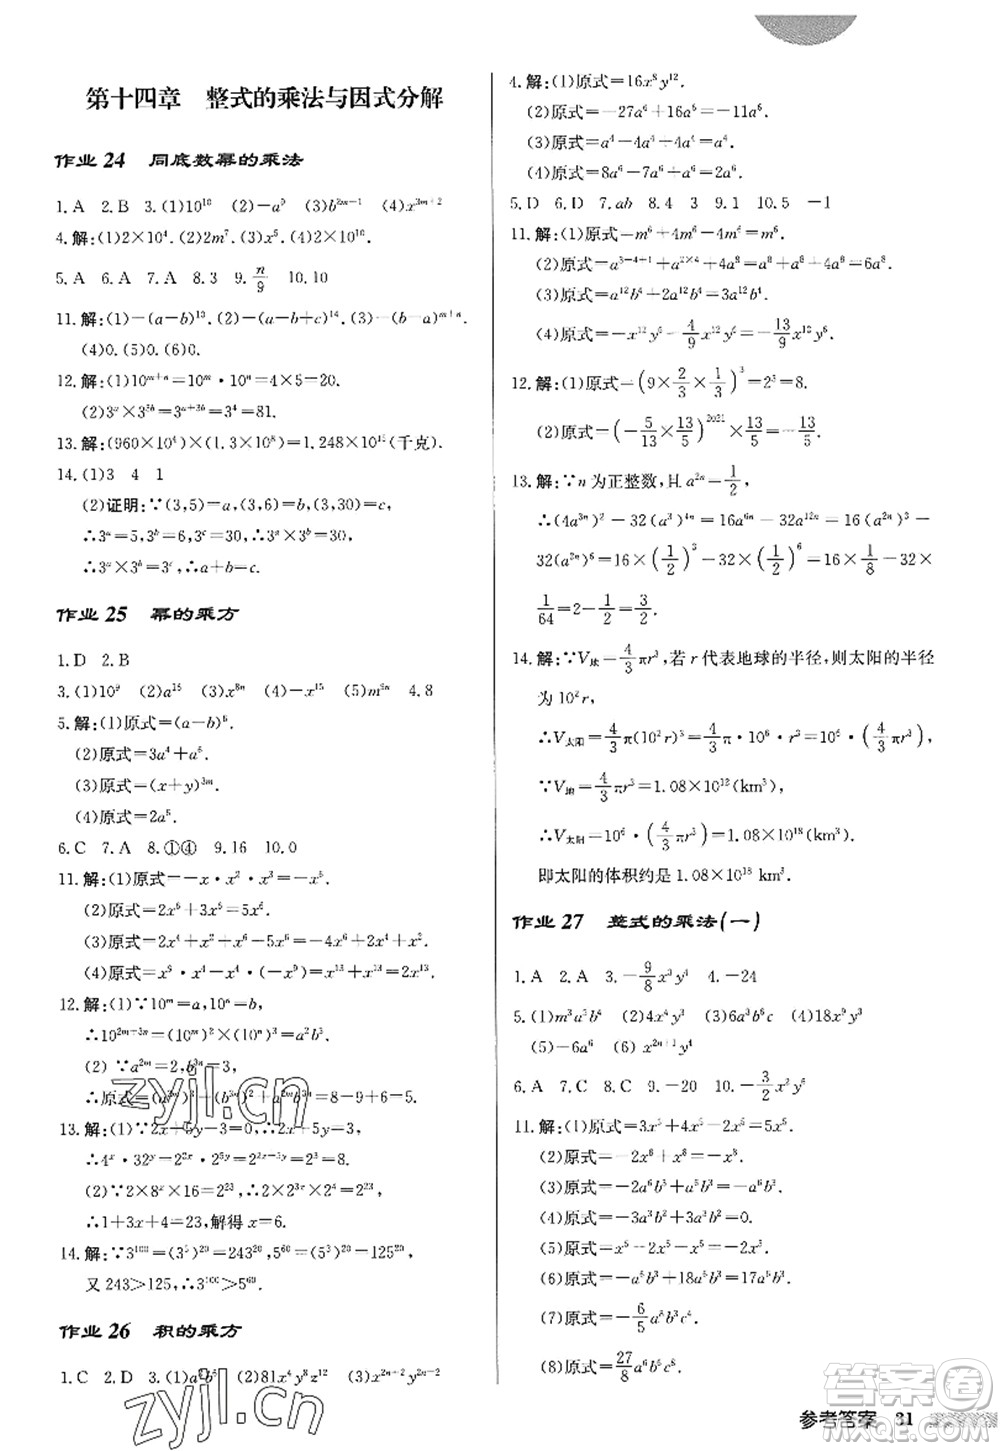 第十四章 整式的乘法与因式分解
作业 24 同底数幂的乘法
1. A 2. B 3. (1)10¹⁰ (2)－a⁹ (3)b²ᵐ⁻¹ (4)x³ᵐ⁺²
4. 解:(1)2×10⁴. (2)2m⁷. (3)x⁵. (4)2×10¹⁰.
5. A 6. A 7. A 8. 3 9. n/9 10. 10
11. 解:(1)－(a－b)¹³. (2)－(a－b＋c)¹⁴. (3)－(b－a)ᵐ⁺ⁿ.
(4)0. (5)0. (6)0.
12. 解:(1)10ᵐ⁺ⁿ＝10ᵐ·10ⁿ＝4×5＝20.
(2)3ᵃ×3³ᵇ＝3ᵃ⁺³ᵇ＝3⁴＝81.
13. 解:(960×10⁴)×(1.3×10⁸)＝1.248×10¹⁵(千克).
14. (1)3 4 1
(2)证明:∵(3,5)＝a,(3,6)＝b,(3,30)＝c,
∴3ᵃ＝5,3ᵇ＝6,3ᶜ＝30,∴3ᵃ×3ᵇ＝30,
∴3ᵃ×3ᵇ＝3ᶜ,∴a＋b＝c.
作业 25 幂的乘方
1. D 2. B
3. (1)10⁹ (2)a¹⁶ (3)x⁸ⁿ (4)－x¹⁵ (5)m⁹ⁿ 4. 8
5. 解:(1)原式＝(a－b)⁶.
(2)原式＝3a⁴＋a⁶.
(3)原式＝(x＋y)³ᵐ.
(4)原式＝2a⁶.
6. C 7. A 8. ①④ 9. 16 10. 0
11. 解:(1)原式＝－x·x²·x³＝－x⁶.
(2)原式＝2x⁶＋3x⁶＝5x⁶.
(3)原式＝2x⁴＋x²＋x⁶－5x⁶＝－4x⁶＋2x⁴＋x².
(4)原式＝x⁹·x⁴－x⁴·(－x⁹)＝x¹³＋x¹³＝2x¹³.
12. 解:(1)∵10ᵐ＝a,10ⁿ＝b,
∴10²ᵐ⁺³ⁿ＝(10ᵐ)²×(10ⁿ)³＝a²b³.
(2) ∵a²ᵐ＝2,b³ⁿ＝3,
∴原式＝(a²ᵐ)³＋(b³ⁿ)²－(a²ᵐ)²＝8＋9－4＝13.
13. 解:(1)∵2x＋5y－3＝0,∴2x＋5y＝3,
∴4ˣ·32ʸ＝2²ˣ·2⁵ʸ＝2²ˣ⁺⁵ʸ＝2³＝8.
(2)∵2×8ˣ×16＝2²³,∴2×2³ˣ×2⁴＝2²³,
∴1＋3x＋4＝23,解得x＝6.
14. 解:∵3¹⁰⁰＝(3⁵)²⁰＝243²⁰,5⁶⁰＝(5³)²⁰＝125²⁰,
又 243>125,∴3¹⁰⁰>5⁶⁰.
作业 26 积的乘方
1. C 2. D 3. (1)a⁶b⁶ (2)81x⁴y⁸z¹² (3)xⁿ⁺²y²ⁿ⁺²
4. 解:(1)原式＝16x⁸y¹².
(2)原式＝－27a⁶＋16a⁶＝－11a⁶.
(3)原式＝a⁴－a⁴＝0.
(4)原式＝8a⁶－a⁶＝7a⁶.
5. D 6. D 7. ab 8. 4 3 9. 1 10. 5 －1
11. 解:(1)原式＝m⁶＋4m⁶－4m⁶＝m⁶.
(2)原式＝a³⁺⁴⁺¹＋a²ˣ⁴＋4a⁸＝a⁸＋a⁸＋4a⁸＝6a⁸.
(3)原式＝a¹²b⁴＋2a¹²b⁴＝3a¹²b⁴.
(4)原式＝－x¹²y⁶－4/9x¹²y⁶＝－13/9x¹²y⁶.
12. 解:(1)原式＝(9×2/3×1/3)³＝2³＝8.
(2)原式＝(－5/13×13/5)²⁰²¹×13/5＝－13/5.
13. 解:∵n 为正整数,且 a²ⁿ＝1/2,
∴(4a³ⁿ)²－32(a³)⁴ⁿ＝16a⁶ⁿ－32a¹²ⁿ＝16(a²ⁿ)³－
32(a²ⁿ)⁶＝16×(1/2)³－32×(1/2)⁶＝16×1/8－32×
1/64＝2－1/2＝3/2.
14. 解:∵V地＝4/3πr³,若 r 代表地球的半径,则太阳的半径
为 10²r,
∴V太阳＝4/3π(10²r)³＝4/3π·10⁶·r³＝10⁶·(4/3πr³),
∵V地＝4/3πr³＝1.08×10¹²(km³),
∴V太阳＝10⁶·(4/3πr³)＝1.08×10¹⁸(km³).
即太阳的体积约是 1.08×10¹⁸ km³.
作业 27 整式的乘法(一)
1. A 2. A 3. －9/8x³y⁴ 4. －24
5. (1)m³a³b⁴ (2)4x⁴y³ (3)6a³b⁶c (4)18x⁹y³
(5)－6a⁶ (6) x²ⁿ⁺²yⁿ⁺¹
6. A 7. C 8. C 9. －20 10. －3/2x²y⁶
11. 解:(1)原式＝3x⁵＋4x⁵－2x⁵＝5x⁵.
(2)原式＝2x⁶＋x⁶＝3x⁶.
(3)原式＝－2a⁶b³＋a⁶b³＝－a⁶b³.
(4)原式＝－3a³b²＋3a³b²＝0.
(5)原式＝2x³y³－2x³y³＝0.
(6)原式＝－a⁵b³＋18a⁵b³＝17a⁵b³.
(7)原式＝－6/5a⁶b³c⁵.
(8)原式＝27/8a⁶b⁴.
参考答案 31
zyjl.cn
zyjl.cn
答案圈
MXQE.COM